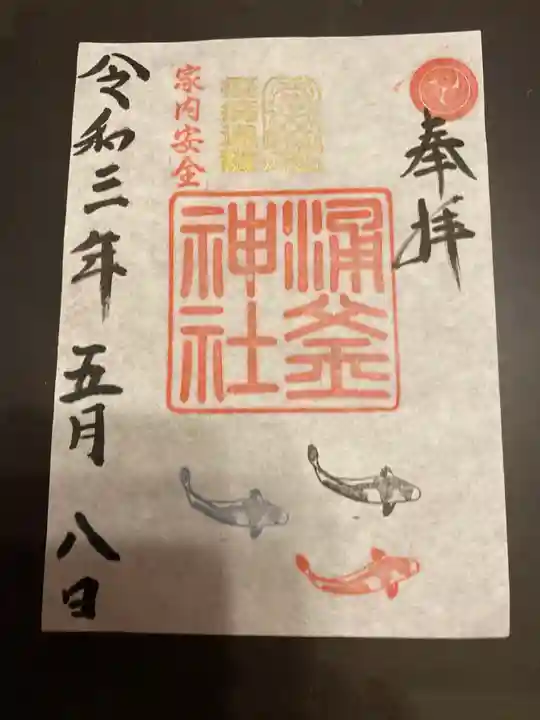 奉拝
涌釜
神社
家内安全
令和三年 五月 八日